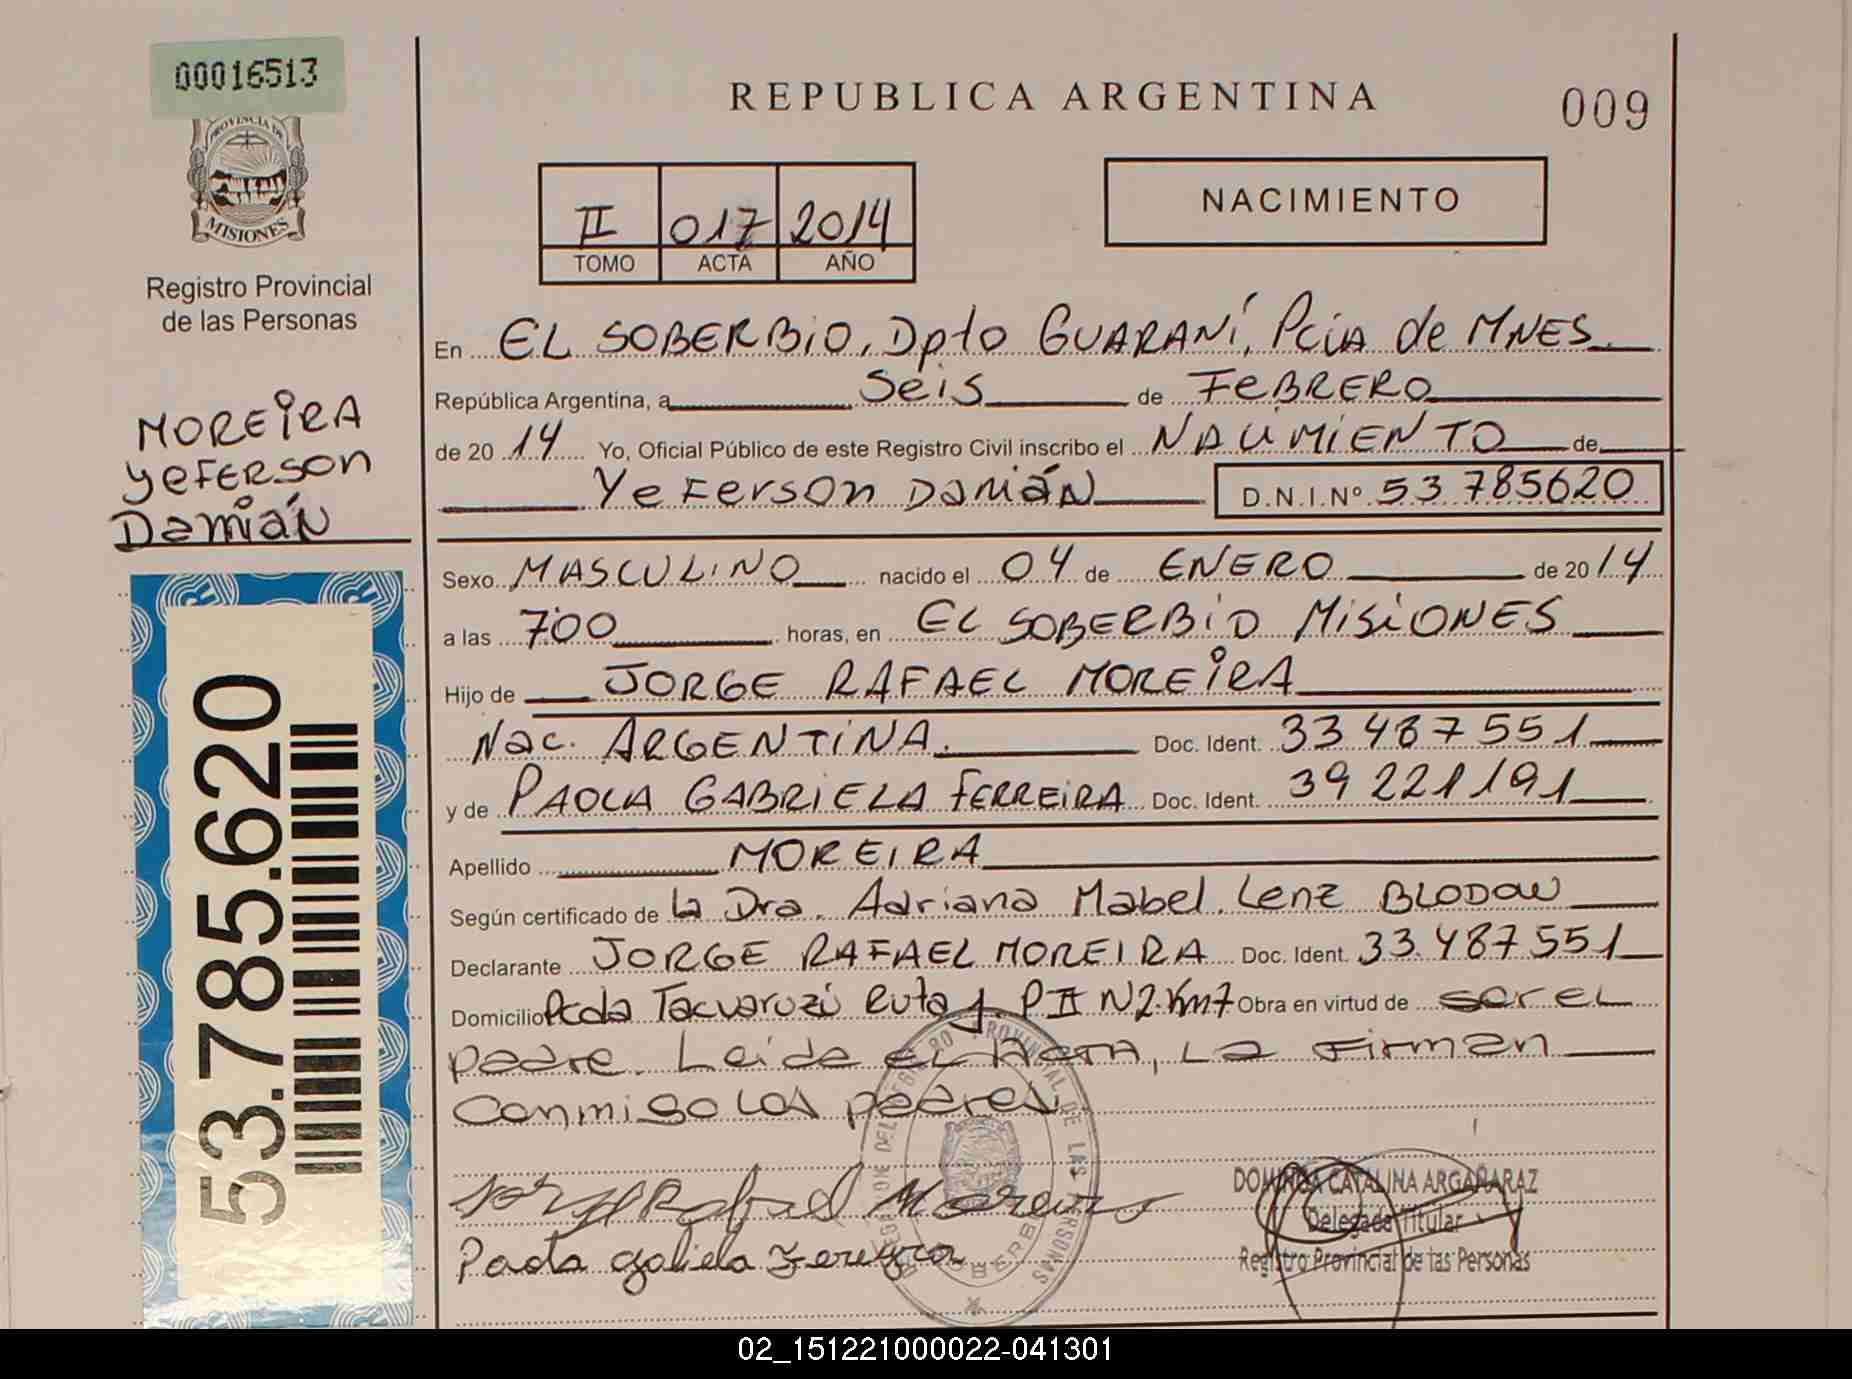 00016513
PROVINCIA DE
MISIONES
Registro Provincial
de las Personas
MOREIRA
YEFERSON
Damián
53.785.620
REPUBLICA ARGENTINA
009
NACIMIENTO
II 017 2014
TOMO ACTA AÑO
En EL SOBERBIO, Dpto GUARANÍ, PciA de MNES
República Argentina, a Seis de FeBRERO
de 20 14 Yo, Oficial Público de este Registro Civil inscribo el NACIMIENTO de
YeFerson Damián D.N.I.Nº 53 785620
Sexo MASCULINO nacido el 04 de ENERO de 20 14
a las 700 horas, en EL SOBERBIO MISIONES
Hijo de JORGE RAFAEL MOREIRA
Nac. ARGENTINA. Doc. Ident. 33 487 551
y de PAOLA GABRIELA FERREIRA Doc. Ident. 39 221 191
Apellido MOREIRA
Según certificado de la Dra. Adriana Mabel. Lenz BLODOW
Declarante JORGE RAFAEL MOREIRA Doc. Ident. 33.487 551
Domicilio Pcda Tacuaruzú Ruta P II N2. Km7 Obra en virtud de ser el
padre. Leida el Acta, La Firman
conmigo los padres
Jorge Rafael Moreira
Paola gabriela Fereyra
DOMINGA CATALINA ARGAÑARAZ
Delegada Titular
Registro Provincial de las Personas
02_151221000022-041301